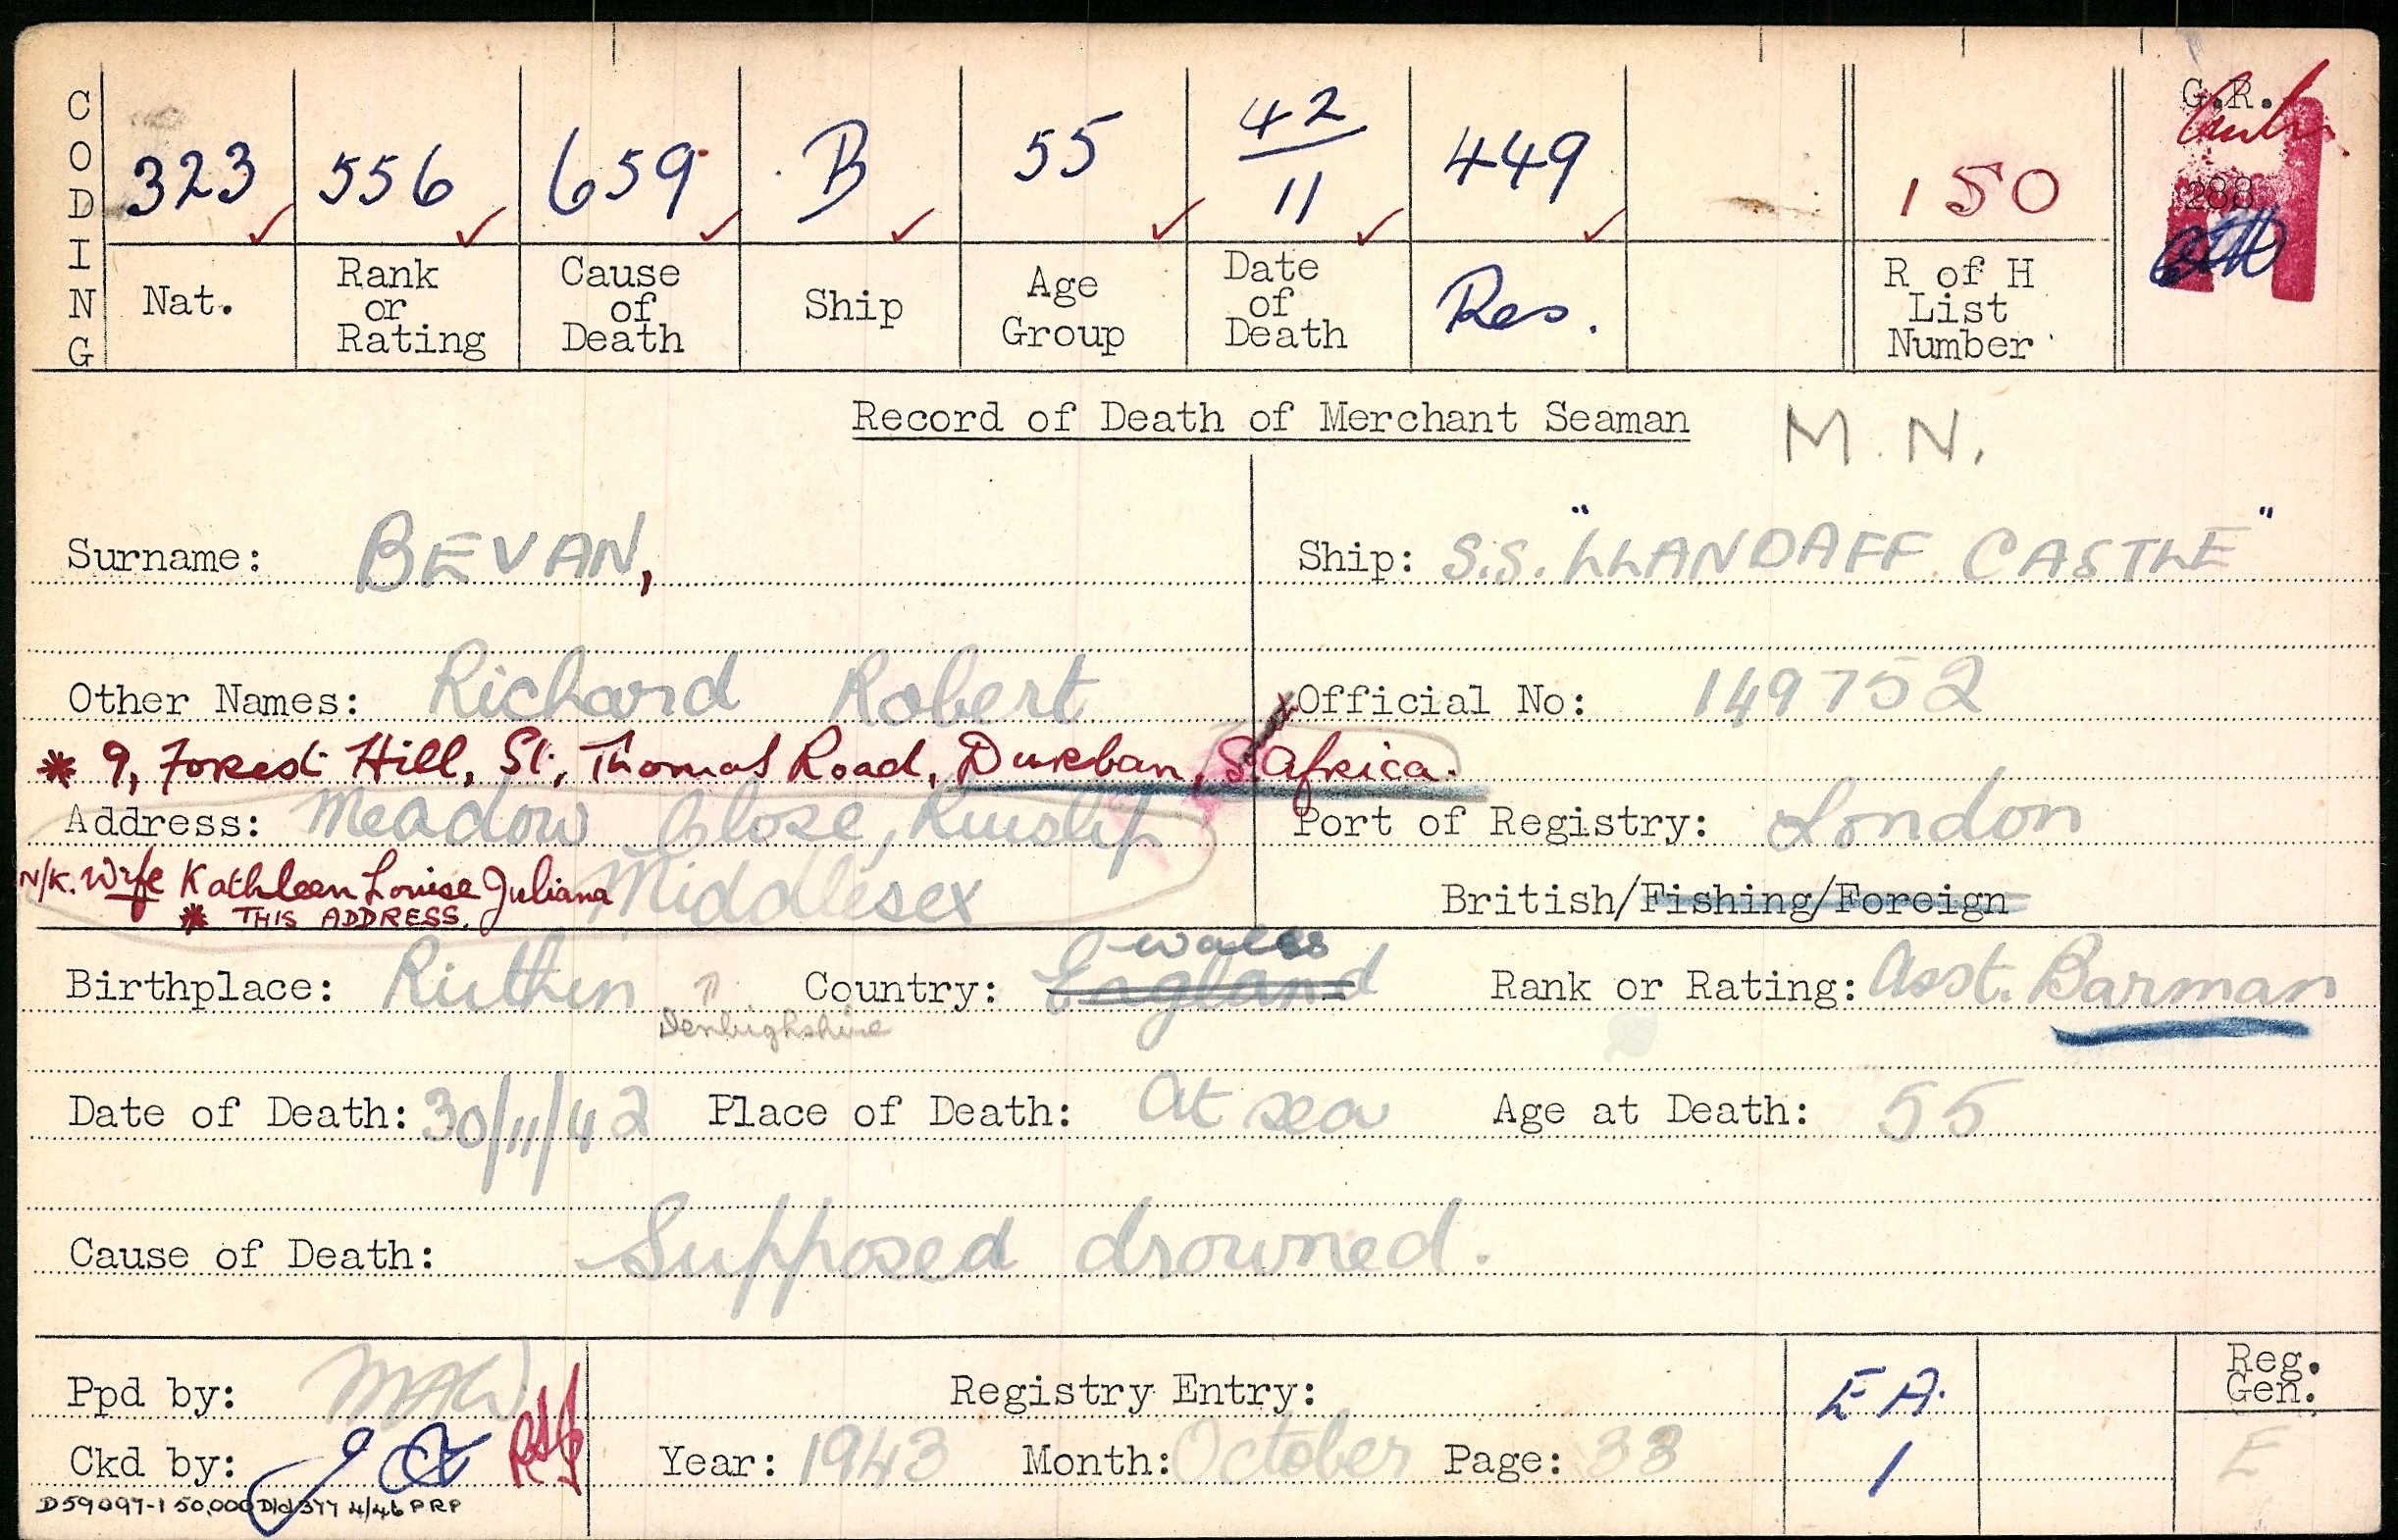 CODING
323 556 659 B 55 42/11 449 150 G.R.
288
Nat. Rank or Rating Cause of Death Ship Age Group Date of Death Res. R of H List Number
Record of Death of Merchant Seaman M.N.
Surname: BEVAN, Ship: S.S. "LLANDAFF CASTLE"
Other Names: Richard Robert Official No: 149752
* 9, Forest Hill, St. Thomas Road, Durban, S. Africa.
Address: Meadow Close, Ruislip Port of Registry: London
N/K. Wife Kathleen Louise Juliana Middlesex British/Fishing/Foreign
* THIS ADDRESS.
Wales
Birthplace: Ruthin Country: England Rank or Rating: Asst. Barman
Denbighshire
Date of Death: 30/11/42 Place of Death: At sea Age at Death: 55
Cause of Death: Supposed drowned.
Ppd by: MAW Registry Entry: E A. Reg. Gen.
Ckd by: Year: 1943 Month: October Page: 33 1 E
D59097-1 50,000 D/d 377 4/46 PRP